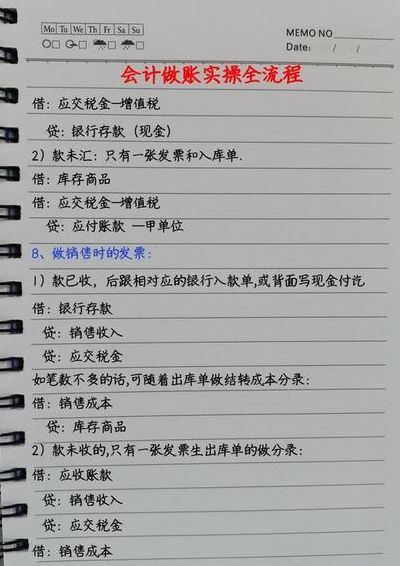 Mo Tu We Th Fr Sa Su
MEMO NO
Date: / /
会计做账实操全流程
借：应交税金—增值税
贷：银行存款（现金）
2）款未汇：只有一张发票和入库单.
借：库存商品
借：应交税金—增值税
贷：应付账款 —甲单位
8、做销售时的发票：
1）款已收，后跟相对应的银行入款单,或背面写现金付讫
借：银行存款
贷：销售收入
贷：应交税金
如笔数不多的话,可随着出库单做结转成本分录：
借：销售成本
贷：库存商品
2）款未收的,只有一张发票生出库单的做分录：
借：应收账款
贷：销售收入
贷：应交税金
借：销售成本